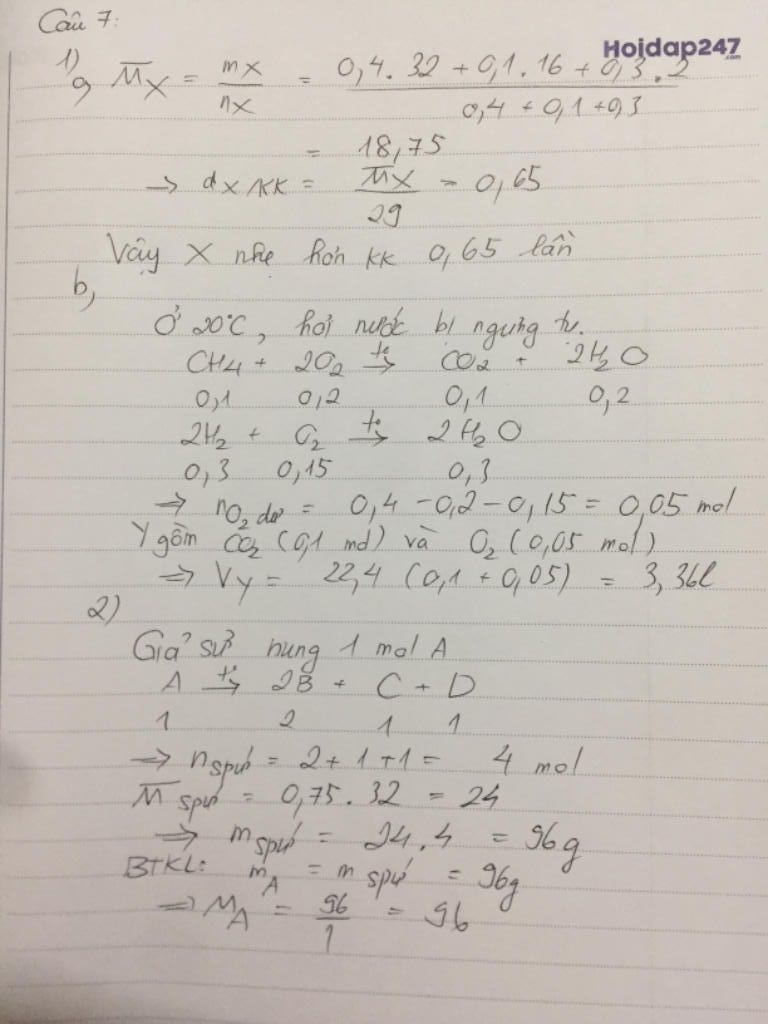 Câu 7:
Hoidap247
.com
1)
a, M̅X = mX / nX = 0,4.32 + 0,1.16 + 0,3.2 / 0,4 + 0,1 + 0,3
= 18,75
→ dX/KK = M̅X / 29 = 0,65
Vậy X nhẹ hơn KK 0,65 lần
b,
Ở 20°C, hơi nước bị ngưng tụ.
CH4 + 2O2 t°→ CO2 + 2H2O
0,1 0,2 0,1 0,2
2H2 + O2 t°→ 2H2O
0,3 0,15 0,3
⇒ nO2 dư = 0,4 - 0,2 - 0,15 = 0,05 mol
Y gồm CO2 (0,1 mol) và O2 (0,05 mol)
⇒ Vy = 22,4 (0,1 + 0,05) = 3,36l
2)
Giả sử nung 1 mol A
A t°→ 2B + C + D
1 2 1 1
⇒ nspứ = 2 + 1 + 1 = 4 mol
M̅spứ = 0,75.32 = 24
⇒ mspứ = 24.4 = 96g
BTKL: mA = mspứ = 96g
⇒ MA = 96 / 1 = 96